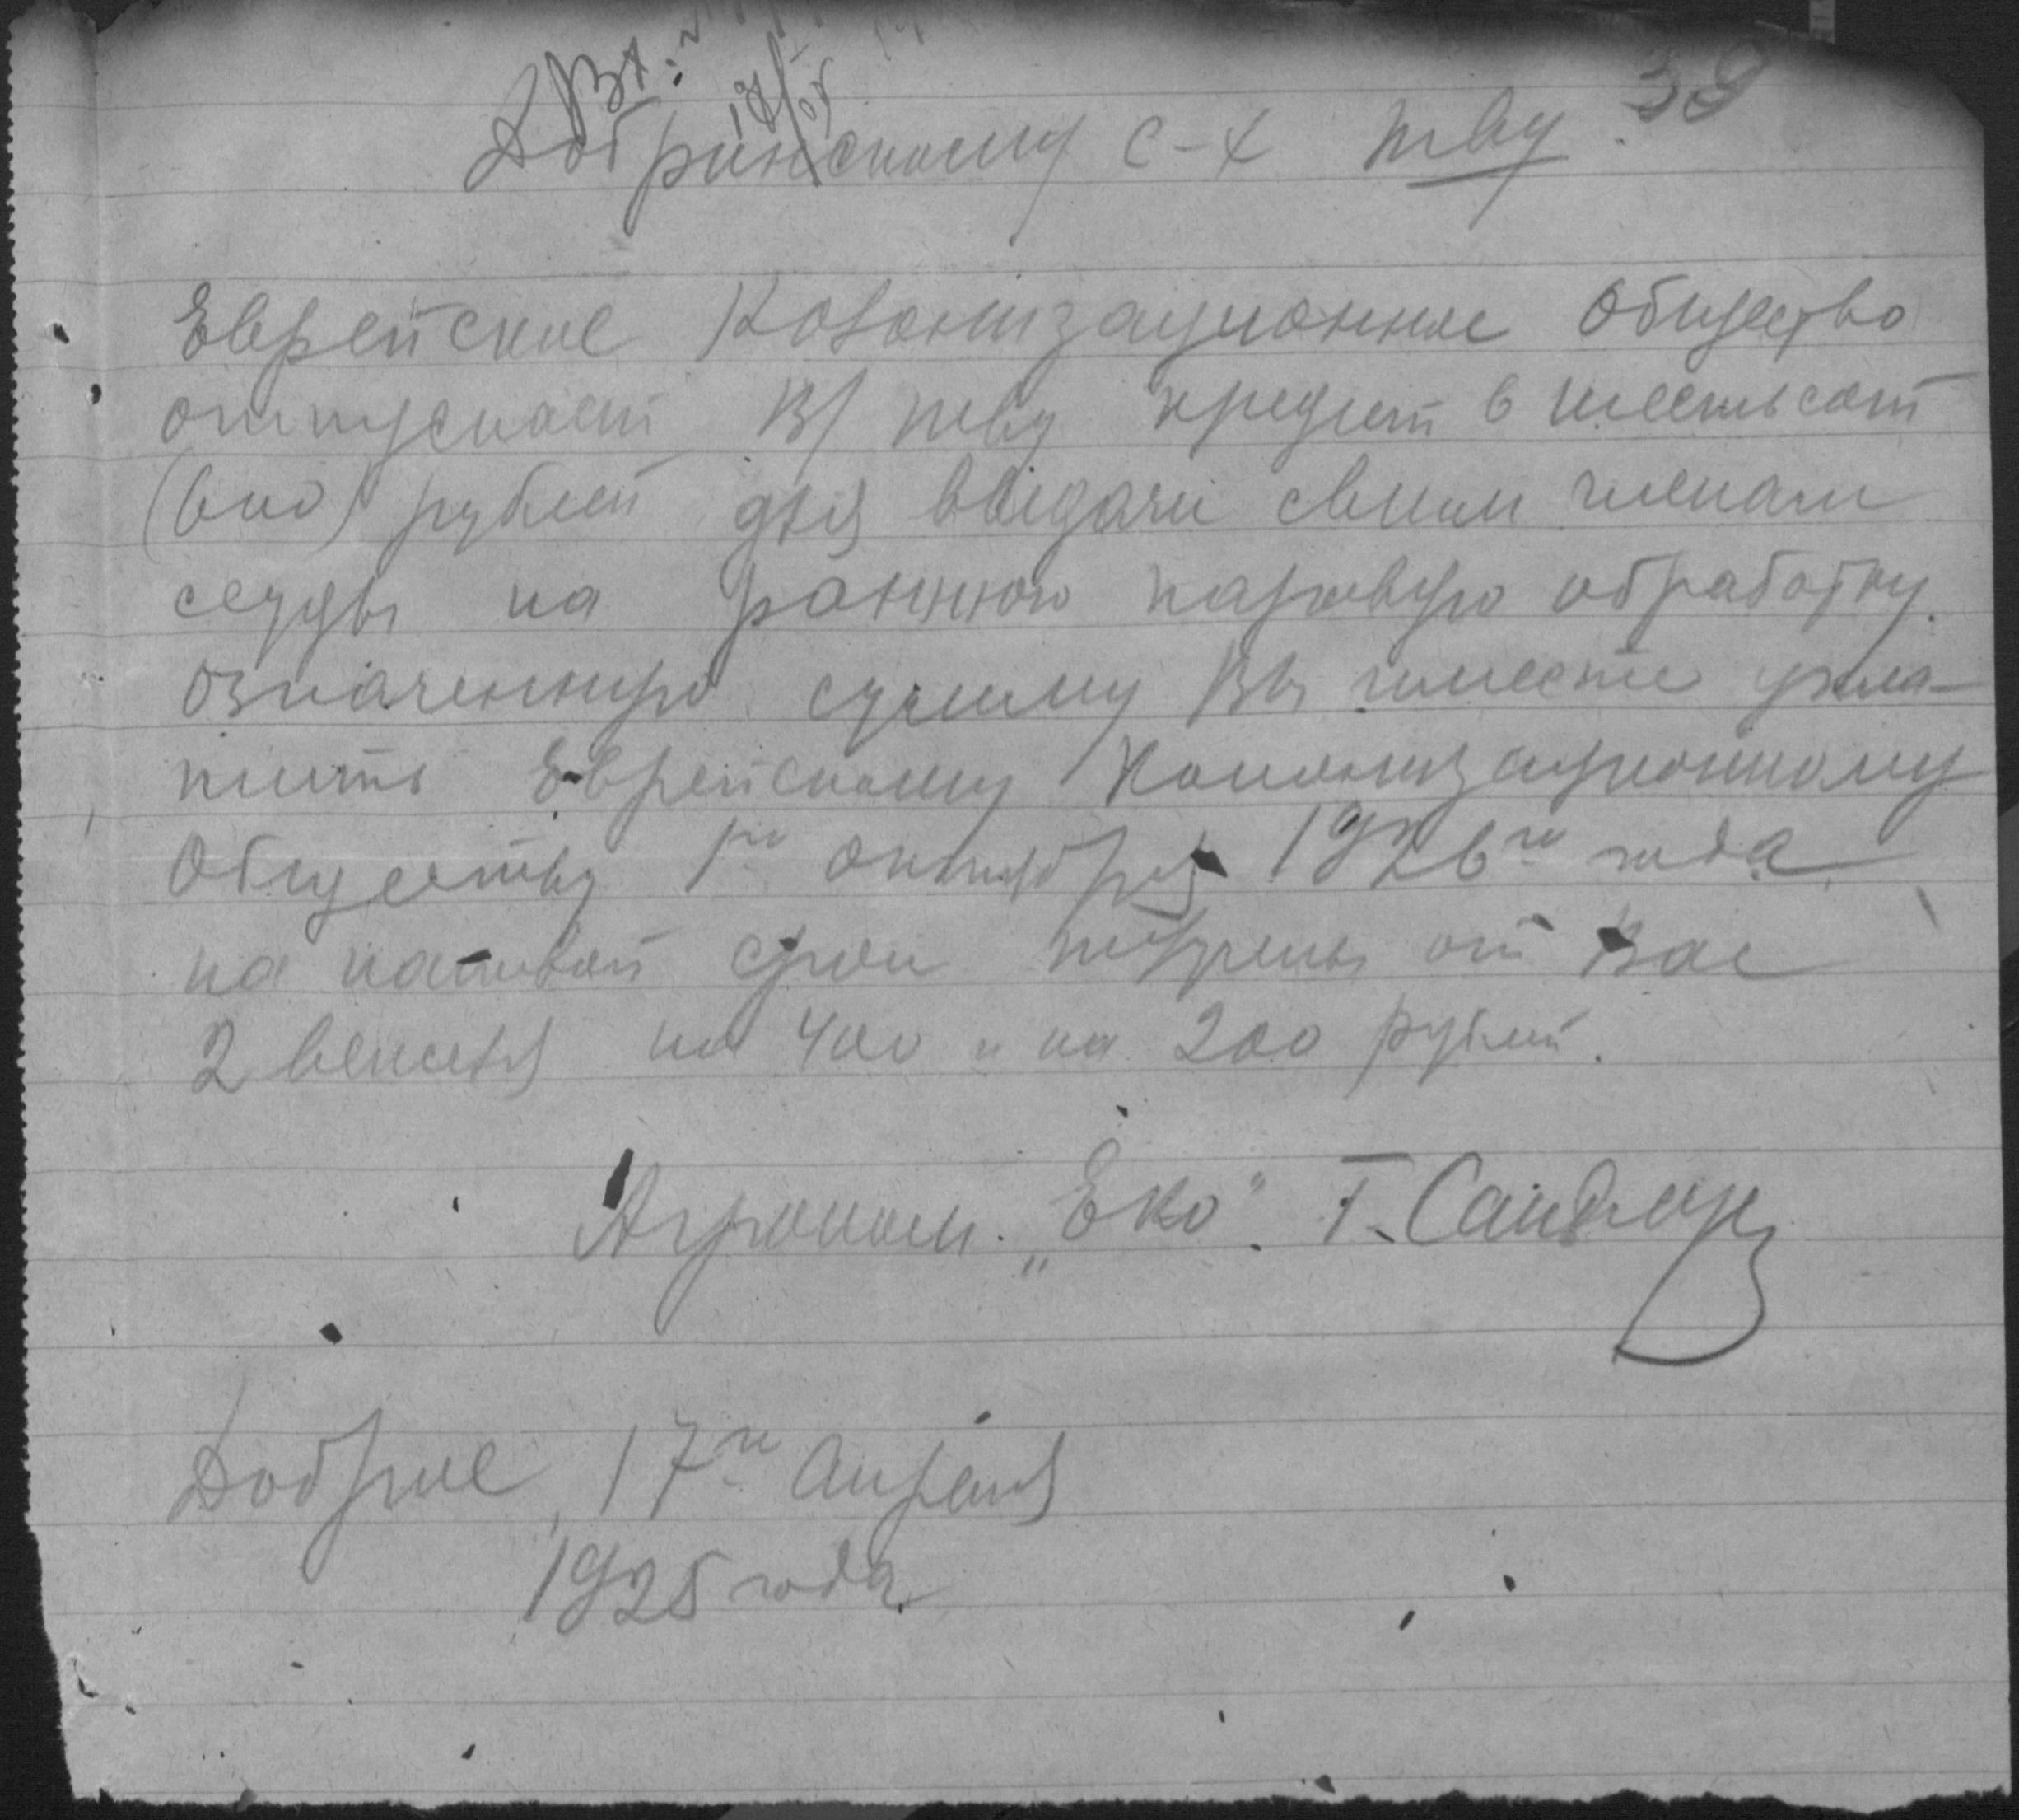 Вх:
39
Добринскому с-х тву
Еврейское Колонизационное Общество
отпускает В/ тву кредит в шестьсот
(600) рублей для выдачи своим членам
ссуды на раннюю паровую обработку.
Означенную сумму Вы имеете упла-
тить Еврейскому Колонизационному
Обществу 1го октября 1926го года
на каковой срок от Вас
2 векселя на 400 и на 200 рублей.
Агроном „Еко". Г. Сандлер
Доброе, 17го Апреля
1925 года